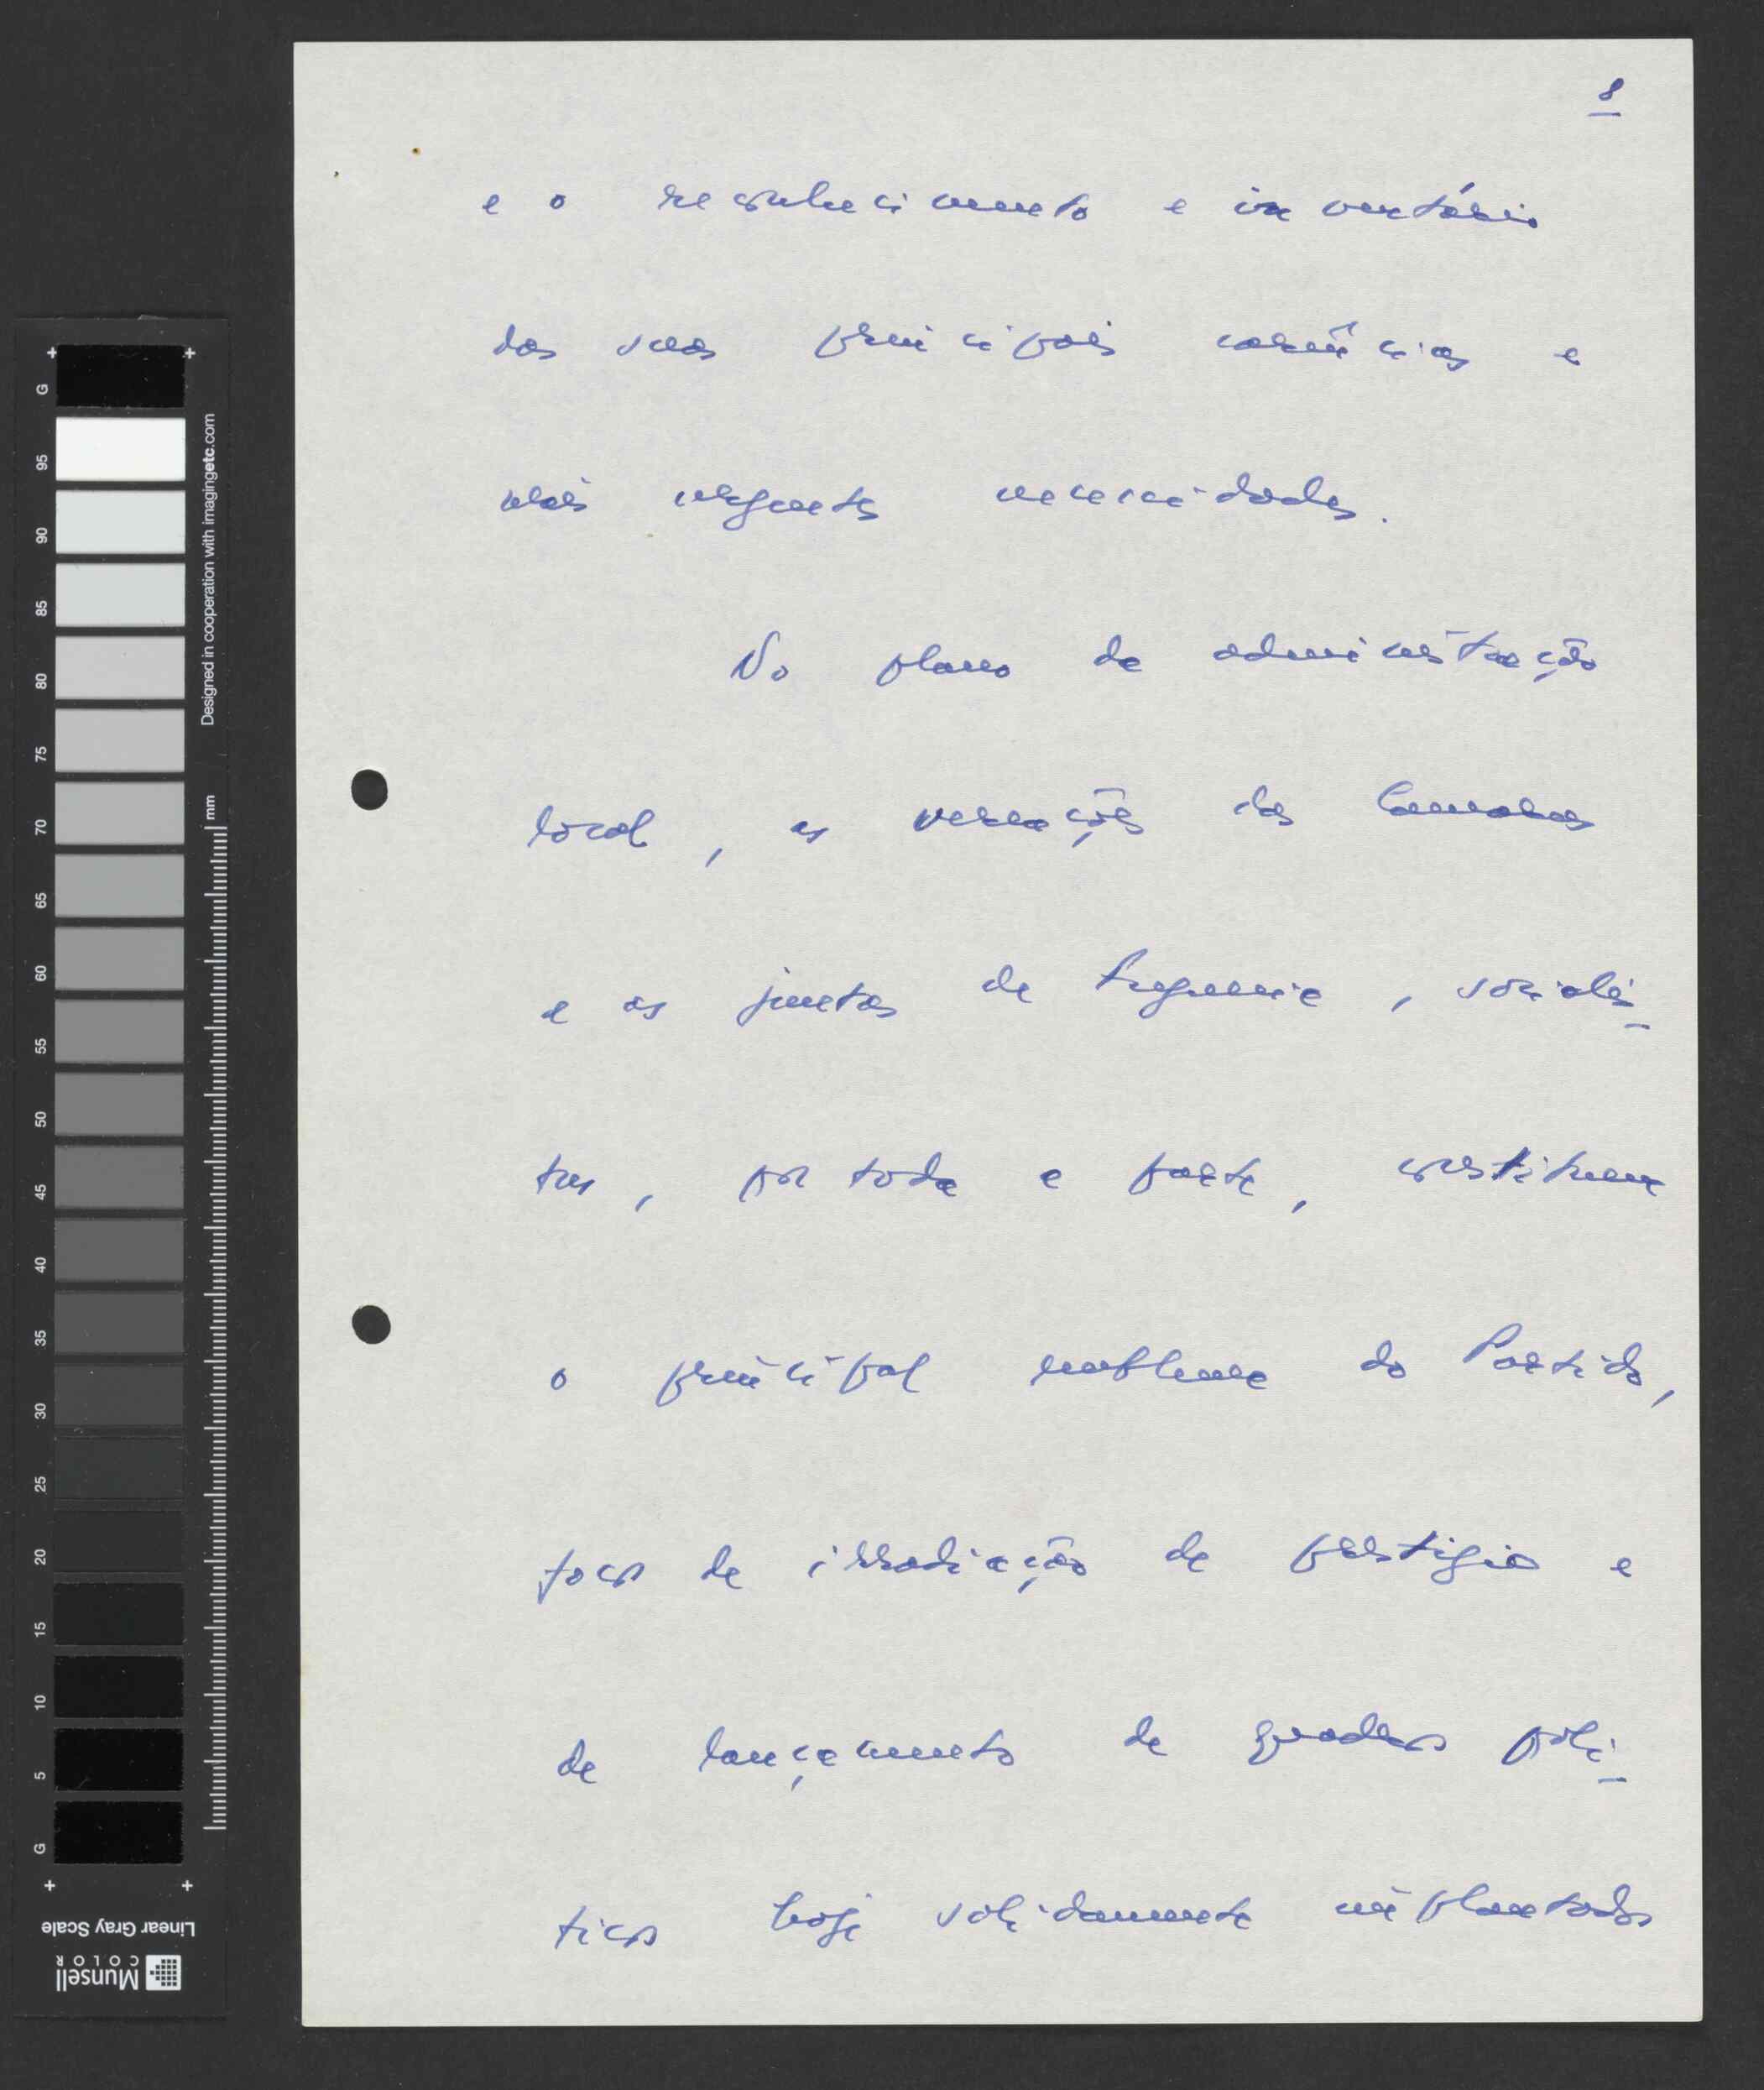 8
e o reconhecimento e inventário
das suas principais carências e
mais urgentes necessidades.
No plano da administração
local, as vereações das Camaras
e as juntas de freguesia, socialis-
tas, por toda a parte, constituem
o principal emblema do Partido,
focos de irradiação de prestigio e
de lançamento de quadros polí-
ticos hoje solidamente implantados
G
95
90
85
80
75
70
65
60
55
50
45
40
35
30
25
20
15
10
5
G
Designed in cooperation with imagingetc.com
mm
Linear Gray Scale
Munsell
COLOR